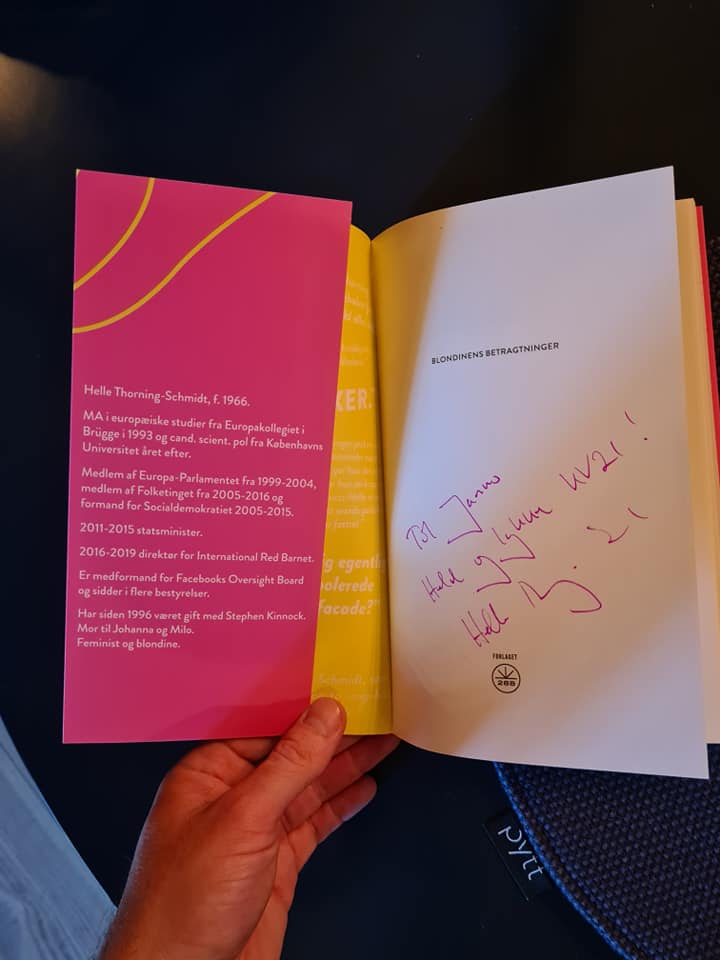 Helle Thorning-Schmidt, f. 1966.
MA i europæiske studier fra Europakollegiet i
Brügge i 1993 og cand. scient. pol fra Københavns
Universitet året efter.
Medlem af Europa-Parlamentet fra 1999-2004,
medlem af Folketinget fra 2005-2016 og
formand for Socialdemokratiet 2005-2015.
2011-2015 statsminister.
2016-2019 direktør for International Red Barnet.
Er medformand for Facebooks Oversight Board
og sidder i flere bestyrelser.
Har siden 1996 været gift med Stephen Kinnock.
Mor til Johanna og Milo.
Feminist og blondine.
KER."
ig egentl
polerede
facade?"
Schmidt,
BLONDINENS BETRAGTNINGER
Til
Held og lykke KV21!
Helle 21
FORLAGET
28B
pytt